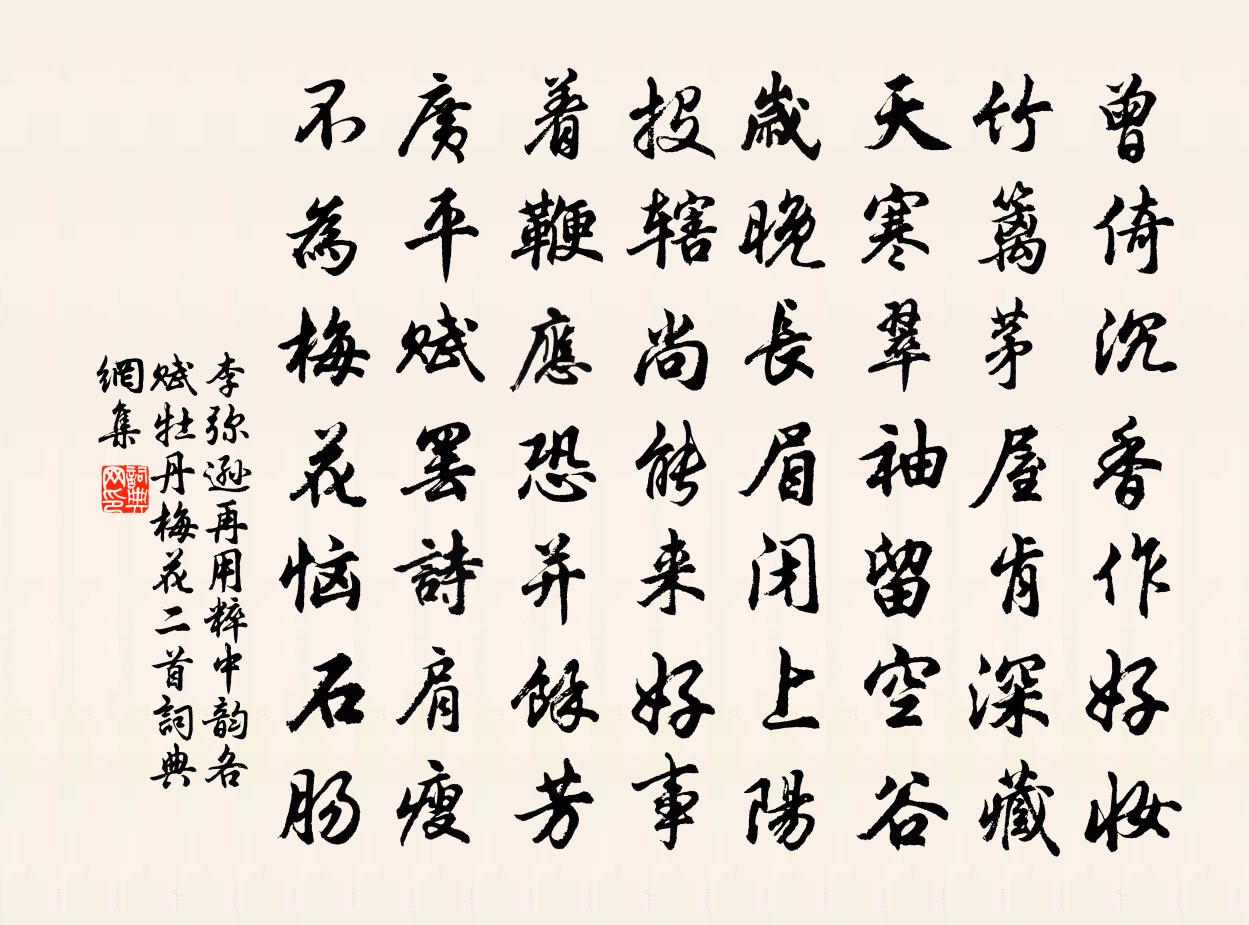 曾倚沉香作好妝
竹籬茅屋肯深藏
天寒翠袖留空谷
歲晚長眉閉上陽
投轄尚能来好事
着鞭應恐并餘芳
廣平賦罷詩肩瘦
不為梅花惱石腸
李弥遜再用粹中韵各
賦牡丹梅花二首詞典
網集
詞典網印